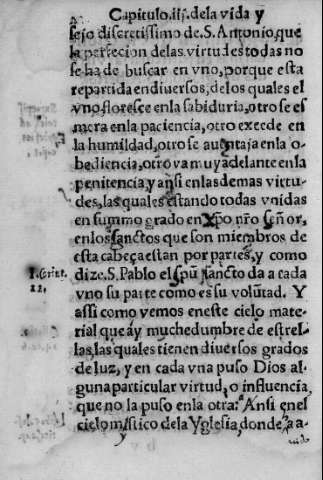 Capitulo.iij.dela vida y
sejo discretissimo de.S.Antonio,que
la perfecion delas virtudes todas no
se ha de buscar en vno, porque esta
repartida en diuersos, delos quales el
vno floresce enla sabiduria, otro se es
mera enla paciencia, otro excede en
la humildad, otro se auẽtaja enla o-
bediencia, otro va muy adelante enla
penitencia, y ansi enlas demas virtu-
des, las quales estando todas vnidas
en summo grado en xp̃o nr̃o señor,
enlos sanctos que son miembros de
esta cabeça estan por partes, y como
1.Corint. dize.S.Pablo el sp̃u sancto da a cada
12. vno su parte como es su volũtad. Y
assi como vemos eneste cielo mate-
rial que ay muchedumbre de estrel-
las, las quales tienen diuersos grados
de luz, y en cada vna puso Dios al-
guna particular virtud, o influencia,
que no la puso enla otra: Ansi enel
cielo mistico dela Yglesia, donde a a-